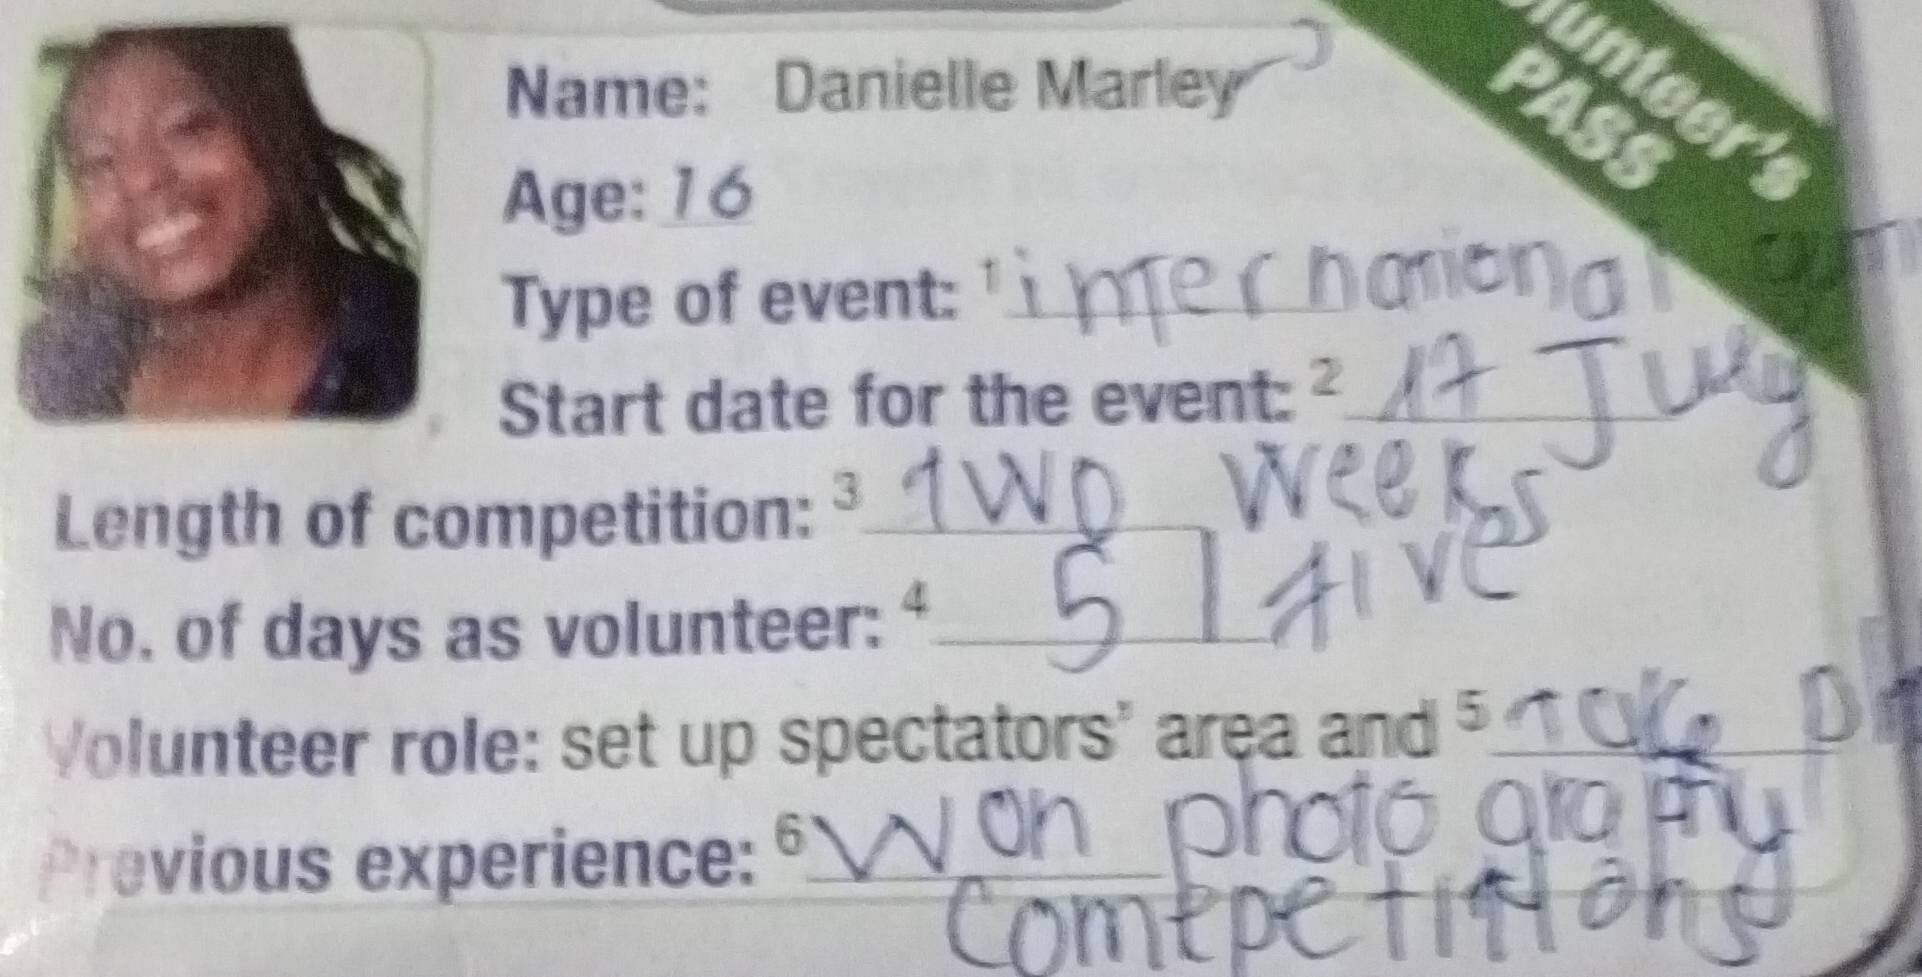 Name: Danielle Marley
Age: 16
Type of event: 1 international
Start date for the event: 2 17 July
Length of competition: 3 two weeks
No. of days as volunteer: 4 5 | five
Volunteer role: set up spectators' area and 5 take
Previous experience: 6 Won photography
Comtpetitions
lunteer's
PASS